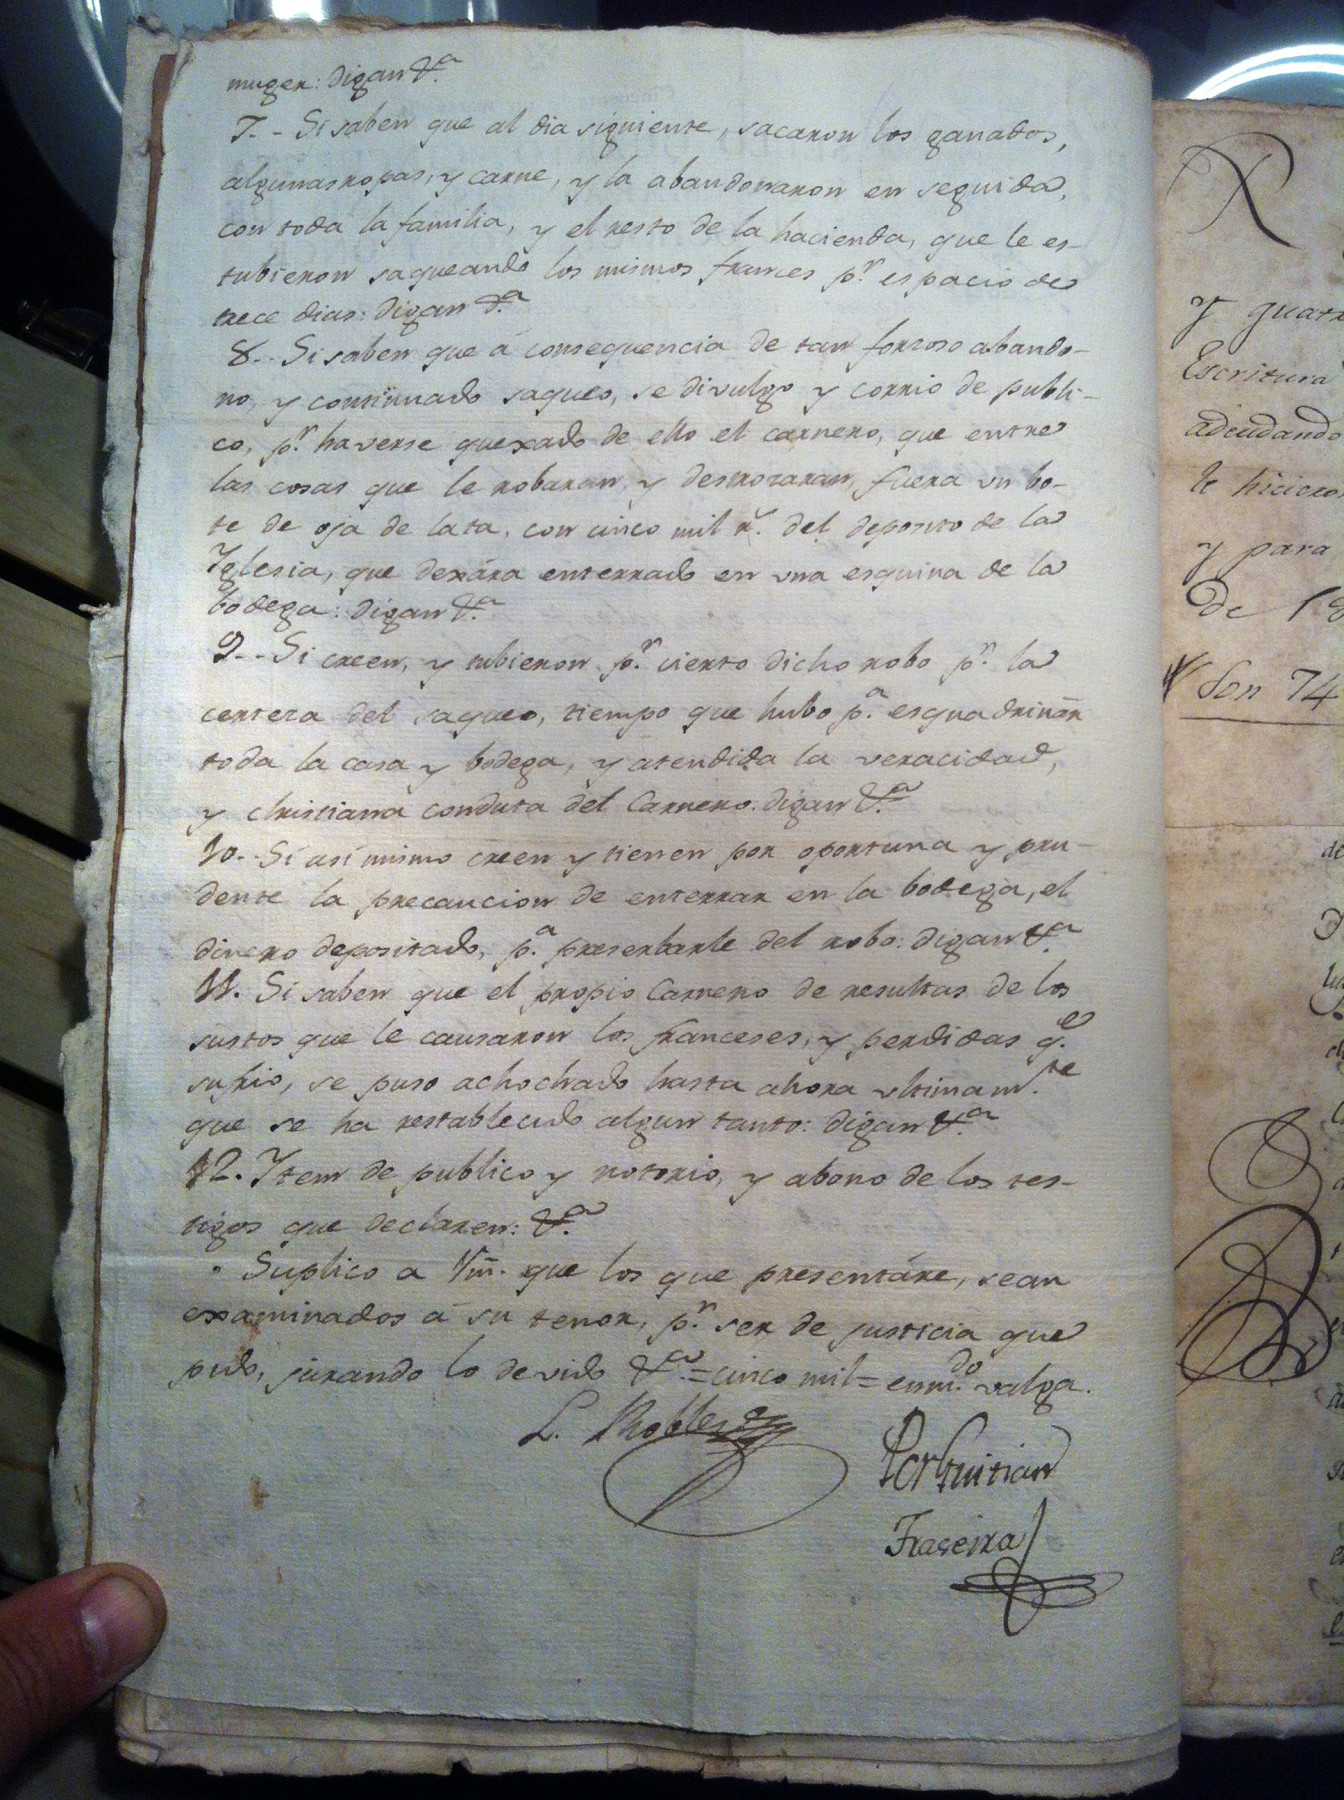 muger: digan &.ª
7.- Si saben que al dia siguiente, sacaron los ganados,
algunas ropas, y carne, y la abandonaron en seguida,
con toda la familia, y el resto de la hacienda, que le es-
tubieron saqueando los mismos frances p.r espacio de
trece dias: digan &.ª
8.- Si saben que á consequencia de tan forzoso abando-
no, y continuado saqueo, se divulgo y corrio de publi-
co, p.r haverse quexado de ello el carnero, que entre
las cosas que le robaran y destrozaran, fuera un bo-
te de oja de lata, con cinco mil r.s del deposito de la
Yglesia, que dexára enterrado en una esquina de la
bodega: digan &.ª
9.- Si creen, y tubieron p.r cierto dicho robo p.r la
certeza del saqueo, tiempo que hubo p.ª esquadriñar
toda la casa y bodega, y atendida la veracidad,
y christiana conduta del Carnero: digan &.ª
10.- Si asi mismo creen y tienen por oportuna y pru-
dente la precaucion de enterrar en la bodega, el
dinero depositado, p.ª preserbarle del robo: digan &.ª
11. Si saben que el propio Carnero de resultas de los
sustos que le causaron los franceses, y perdidas q.e
sufrio, se puso achochado hasta ahora ultimam.te
que se ha restablecido algun tanto: digan &.ª
12. Ytem de publico y notorio, y abono de los tes-
tigos que declaren: &.ª
Suplico a Vm. que los que presentáre, sean
examinados á su tenor, p.r ser de justicia que
pido, jurando lo devido &.ª = cinco mil = enm.do valga.
L. Robles
Fraseira
R
y guar
Escritura
adeudando
le hiciero
y para
de 18
Son 74